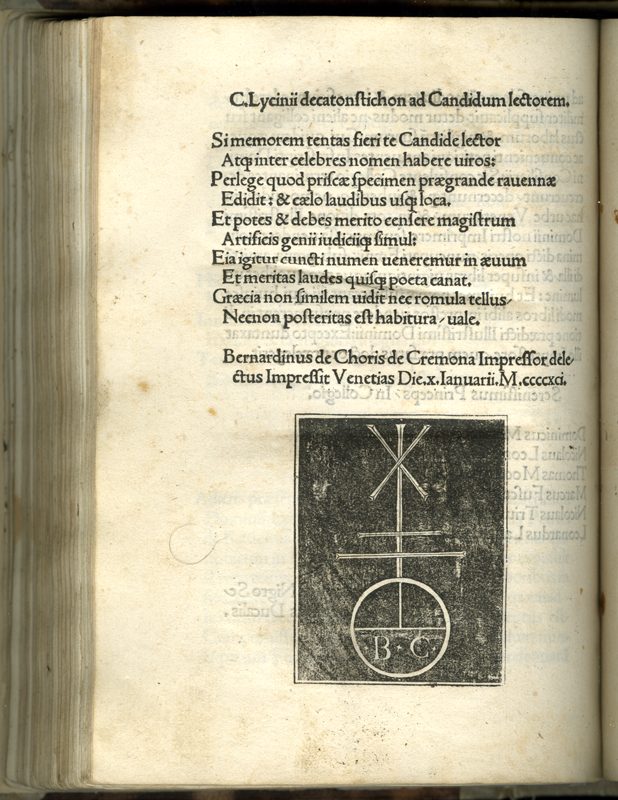 C. Lycinii decatonſtichon ad Candidum lectorem.
Si memorem tentas fieri te Candide lector
Atq; inter celebres nomen habere uiros:
Perlege quod priſcæ ſpecimen prægrande rauennæ
Edidit: & cælo laudibus uſq; loca.
Et potes & debes merito cenſere magiſtrum
Artificis genii iudiciiq; ſimul:
Eia igitur cuncti numen ueneremur in æuum
Et meritas laudes quiſq; poeta canat.
Græcia non ſimilem uidit nec romula tellus/
Necnon poſteritas eſt habitura / uale.
Bernardinus de Choris de Cremona Impreſſor dele
ctus Impreſſit Venetias Die.x.Ianuarii.M.ccccxci.
B · C